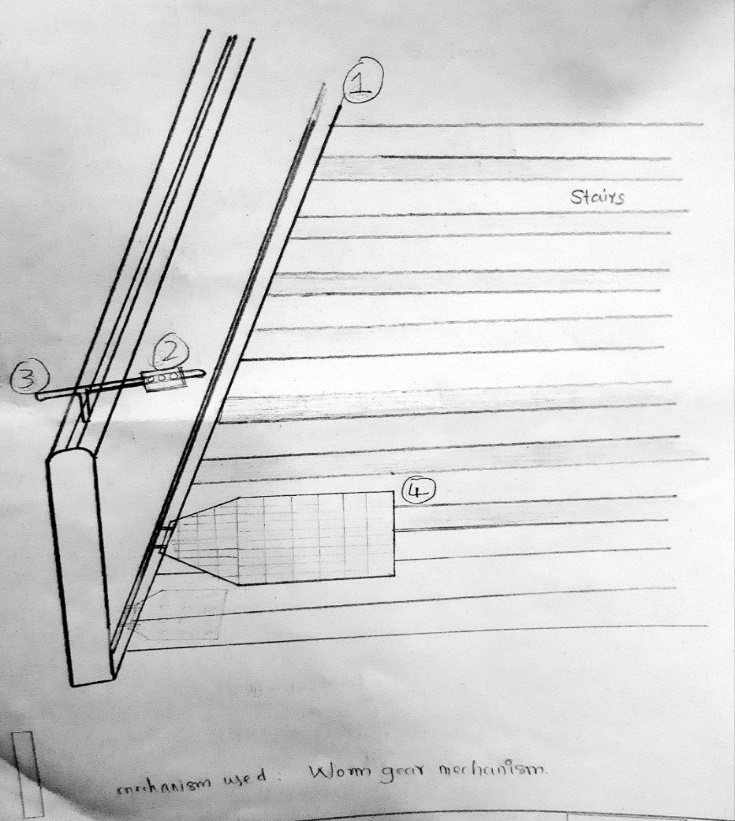 1
Stairs
2
3
4
mechanism used : Worm gear mechanism.